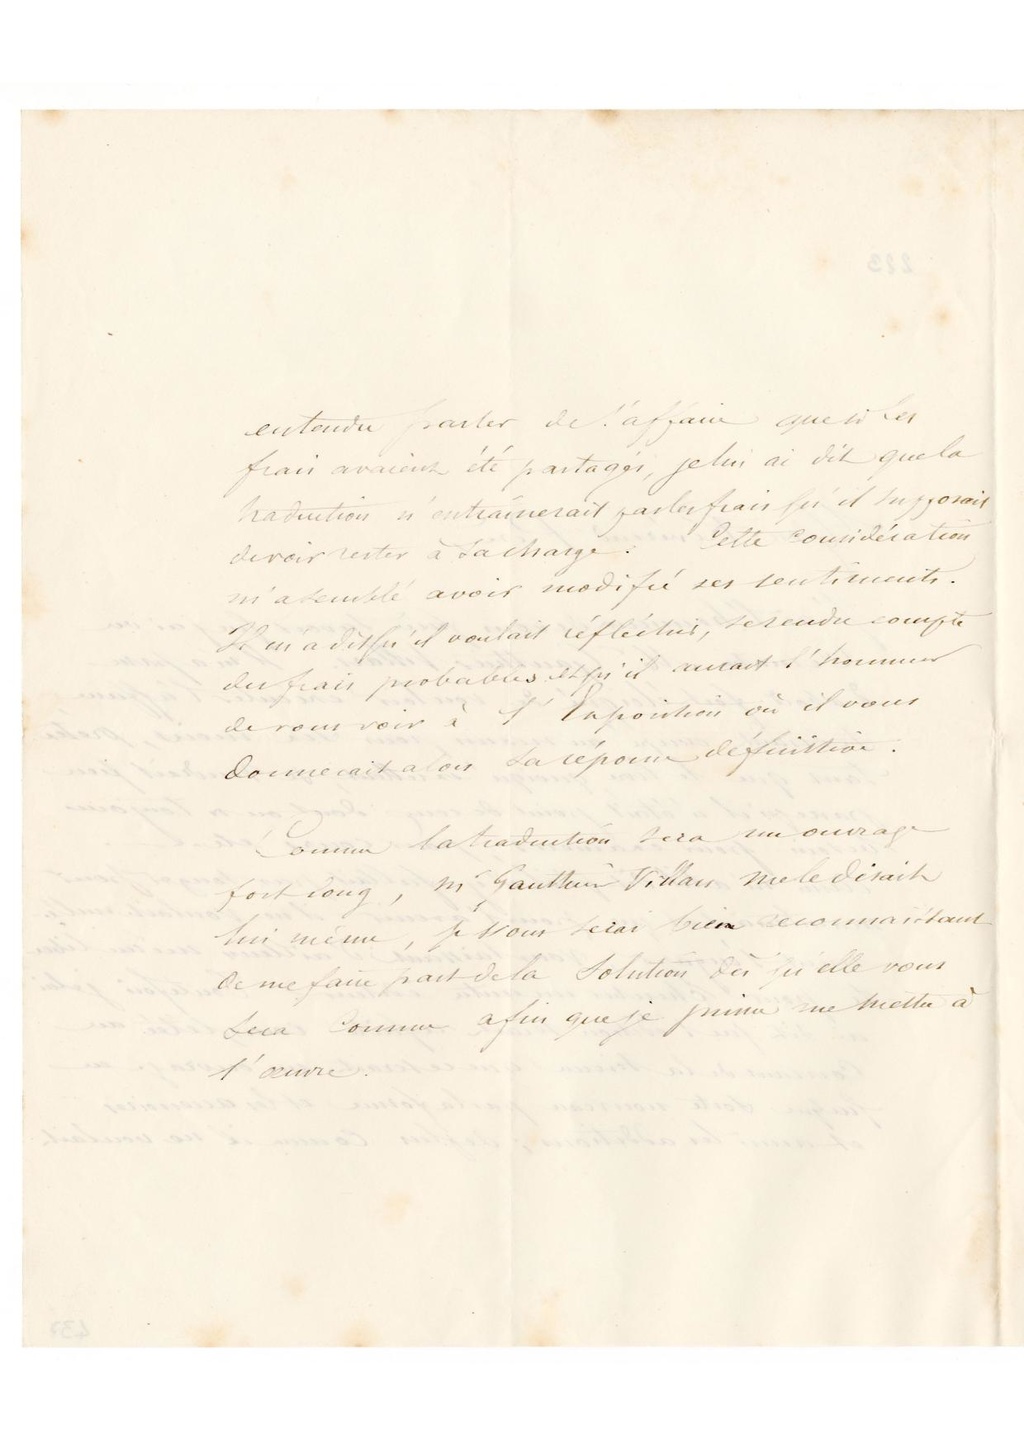 entendre parler de l'affaire que si les
frais avaient été partagés, je lui ai dit que la
traduction n'entraînerait pas les frais qu'il supposait
devoir rester à sa charge. Cette considération
m'a semblé avoir modifié ses sentiments.
Il m'a dit qu'il voulait réfléchir, se rendre compte
des frais probables et qu'il aurait l'honneur
de vous voir à l'Exposition où il vous
donnerait alors sa réponse définitive.
Comme la traduction sera un ouvrage
fort long, Mr Gauthier Villars me le disait
lui même, je vous serai bien reconnaissant
de me faire part de la solution dès qu'elle vous
sera connue afin que je puisse me mettre à
l'œuvre.